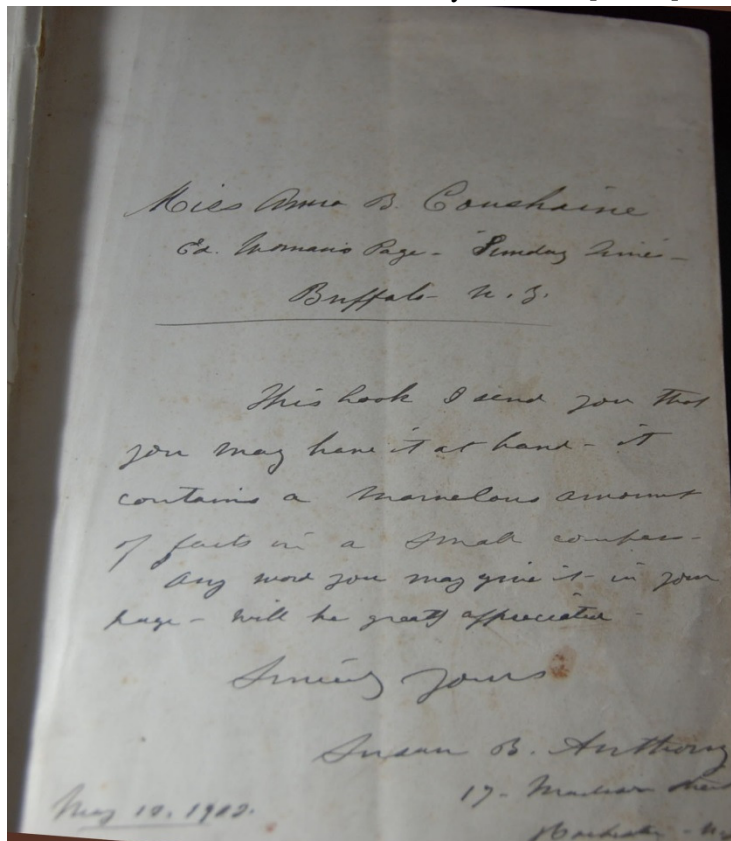 Miss Anna B. Conshaine
Ed. Woman's Page - Sunday Times -
Buffalo - N. Y.
This book I send you that
you may have it at hand - it
contains a marvelous amount
of facts in a small compass -
Any word you may give it - in your
page - will be greatly appreciated -
Sincerely yours
Susan B. Anthony
17 - Madison Street
Rochester - N.Y.
May 10, 1902.